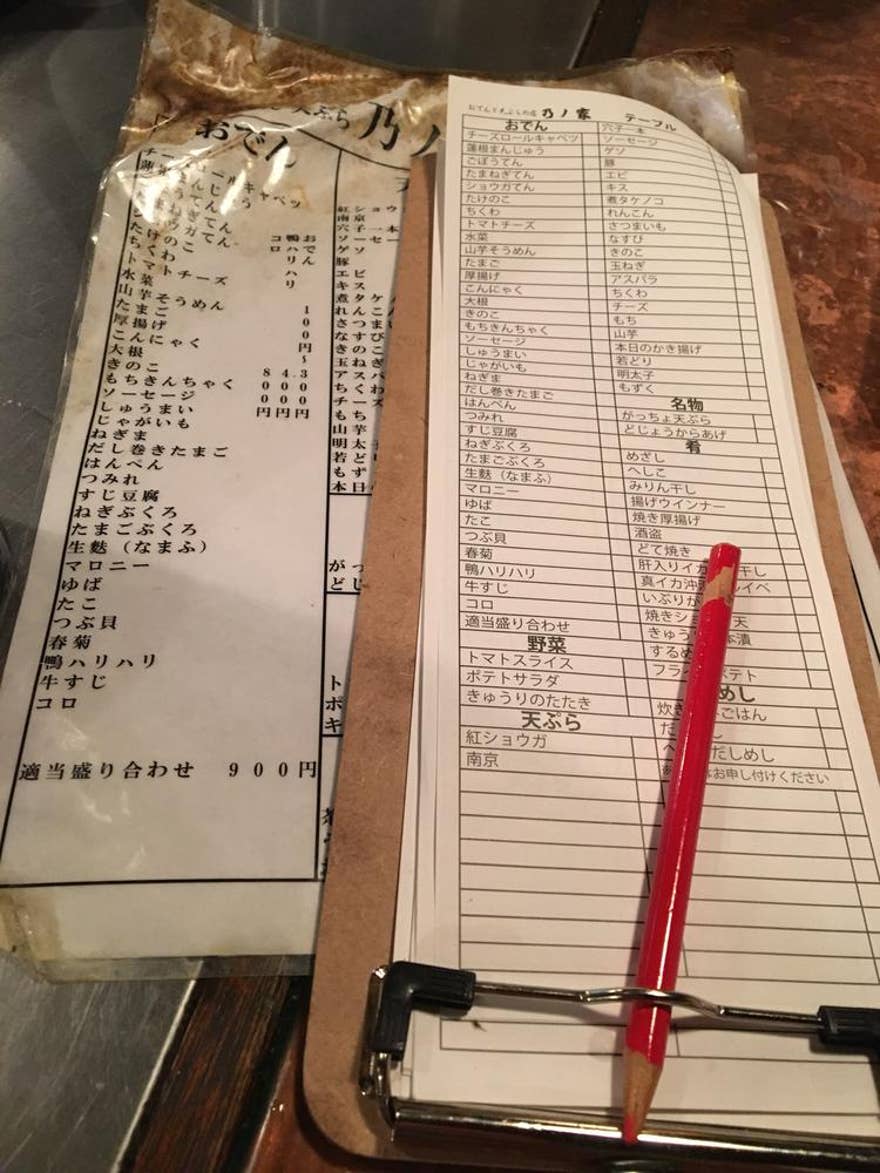 天ぷら 乃ノ
おでん
ロールキャベツ
たけのこ
ちくわ
トマトチーズ
水菜
山芋そうめん
たまご
厚揚げ
こんにゃく
大根
きのこ
もちきんちゃく
ソーセージ
しゅうまい
じゃがいも
ねぎま
だし巻きたまご
はんぺん
つみれ
すじ豆腐
ねぎぶくろ
たまごぶくろ
生麩（なまふ）
マロニー
ゆば
たこ
つぶ貝
春菊
鴨ハリハリ
牛すじ
コロ
おでん 100円〜
鴨ハリハリ
コロ
800円
400円
300円
適当盛り合わせ 900円
乃ノ家 テーブル
おでん
チーズロールキャベツ
蓮根まんじゅう
ごぼうてん
たまねぎてん
ショウガてん
たけのこ
ちくわ
トマトチーズ
水菜
山芋そうめん
たまご
厚揚げ
こんにゃく
大根
きのこ
もちきんちゃく
ソーセージ
しゅうまい
じゃがいも
ねぎま
だし巻きたまご
はんぺん
つみれ
すじ豆腐
ねぎぶくろ
たまごぶくろ
生麩（なまふ）
マロニー
ゆば
たこ
つぶ貝
春菊
鴨ハリハリ
牛すじ
コロ
適当盛り合わせ
野菜
トマトスライス
ポテトサラダ
きゅうりのたたき
天ぷら
紅ショウガ
南京
穴子一本
ソーセージ
ゲソ
豚
エビ
キス
煮タケノコ
れんこん
さつまいも
なすび
きのこ
玉ねぎ
アスパラ
ちくわ
チーズ
もち
山芋
本日のかき揚げ
若どり
明太子
もずく
名物
がっちょ天ぷら
どじょうからあげ
肴
めざし
へしこ
みりん干し
揚げウインナー
焼き厚揚げ
酒盗
どて焼き
肝入りイカ 干し
真イカ沖 ルイベ
いぶりが
焼きショ 天
きゅう 本漬
するめ
フラ ポテト
めし
炊き ごはん
だ ん
へ だしめし
お申し付けください